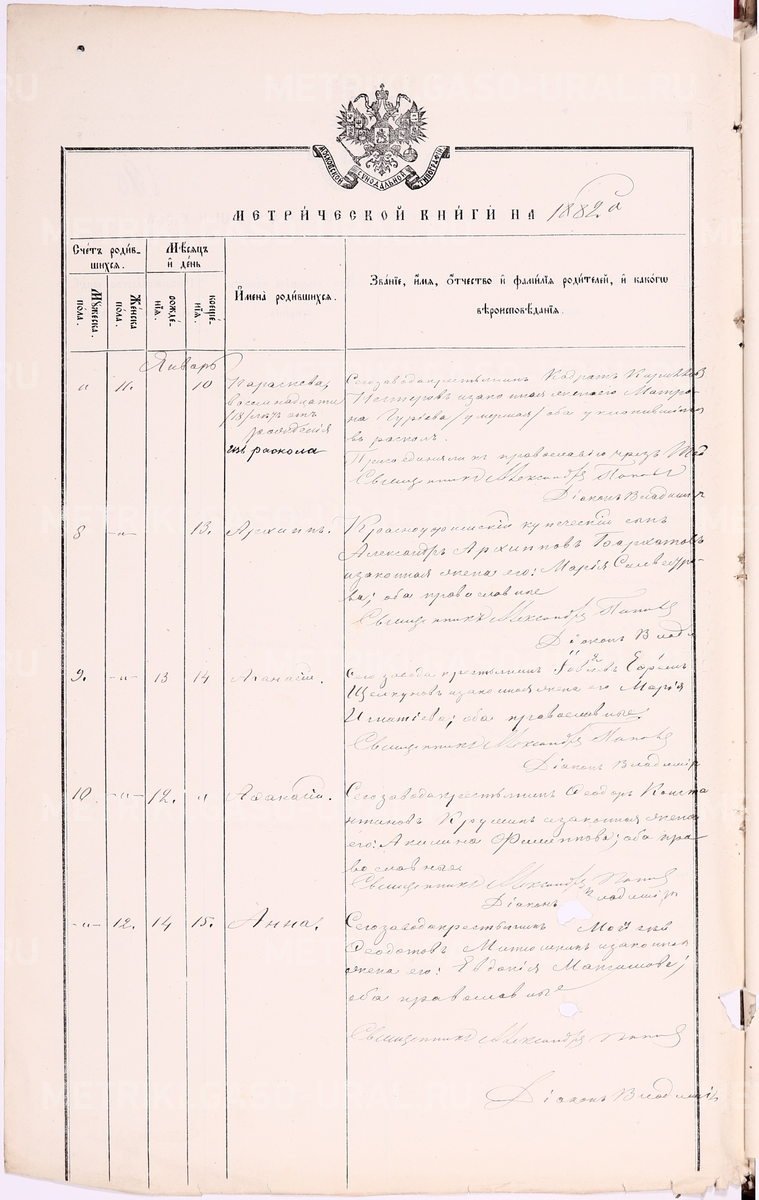 МОСКОВСКОЙ СѴНОДАЛЬНОЙ ТИПОГРАФІИ
МЕТРИ́ЧЕСКОЙ КНИ́ГИ НА 1882 г.
Сче́тъ роди́вшихся.
Мꙋжеска пола.
Же́нска пола.
Мѣ́сяцъ и҆ де́нь
рожде́нїѧ.
креще́нїѧ.
И҆мена̀ роди́вшихся.
Зва́нїе, и҆́мѧ, ѻ҆́тчество и҆ фами́лїѧ роди́телей, и҆ како́гѡ
вѣроисповѣ́данїѧ.
Январь
" 11. 10 Параскева,
восемнадцати
/18/ лѣтъ отъ
рожденія
изъ раскола
Сегозавода крестьянинъ Кодратъ
Нестеровъ и законная жена его Матро-
на Гуріева /умершая/ оба уклонившіеся
въ расколъ.
Присоединила къ православію чрезъ
Священникъ Александръ Поповъ
Діаконъ Владимір
8 -"- 13. Архиппъ.
Красноуфимскій купеческій сынъ
Александръ Архипповъ Бархатовъ
и законная жена его: Марія Сильвестро-
ва; оба православные
Священникъ Александръ Поповъ
Діаконъ Влади
9. -"- 13 14 Аѳанасій.
Сегозавода крестьянинъ Іовъ Ефремъ
Щелкуновъ и законная жена его Марія
Игнатіева; оба православные.
Священникъ Александръ Поповъ
Діаконъ Владимір
10 -"- 12. " Аѳанасій.
Сегозавода крестьянинъ Ѳеодоръ Конста
нтиновъ и законная жена
его: Акилина Филиппова; оба пра-
вославные
Священникъ Александръ Поповъ
Діаконъ Владимір
-"- 12. 14 15. Анна.
Сегозавода крестьянинъ Мойсей
Ѳеодотовъ Матюшинъ и законная
жена его: Евдокія Максимова;
оба православные
Священникъ Александръ Поповъ
Діаконъ Владимір
METRIKI.GASO-URAL.RU